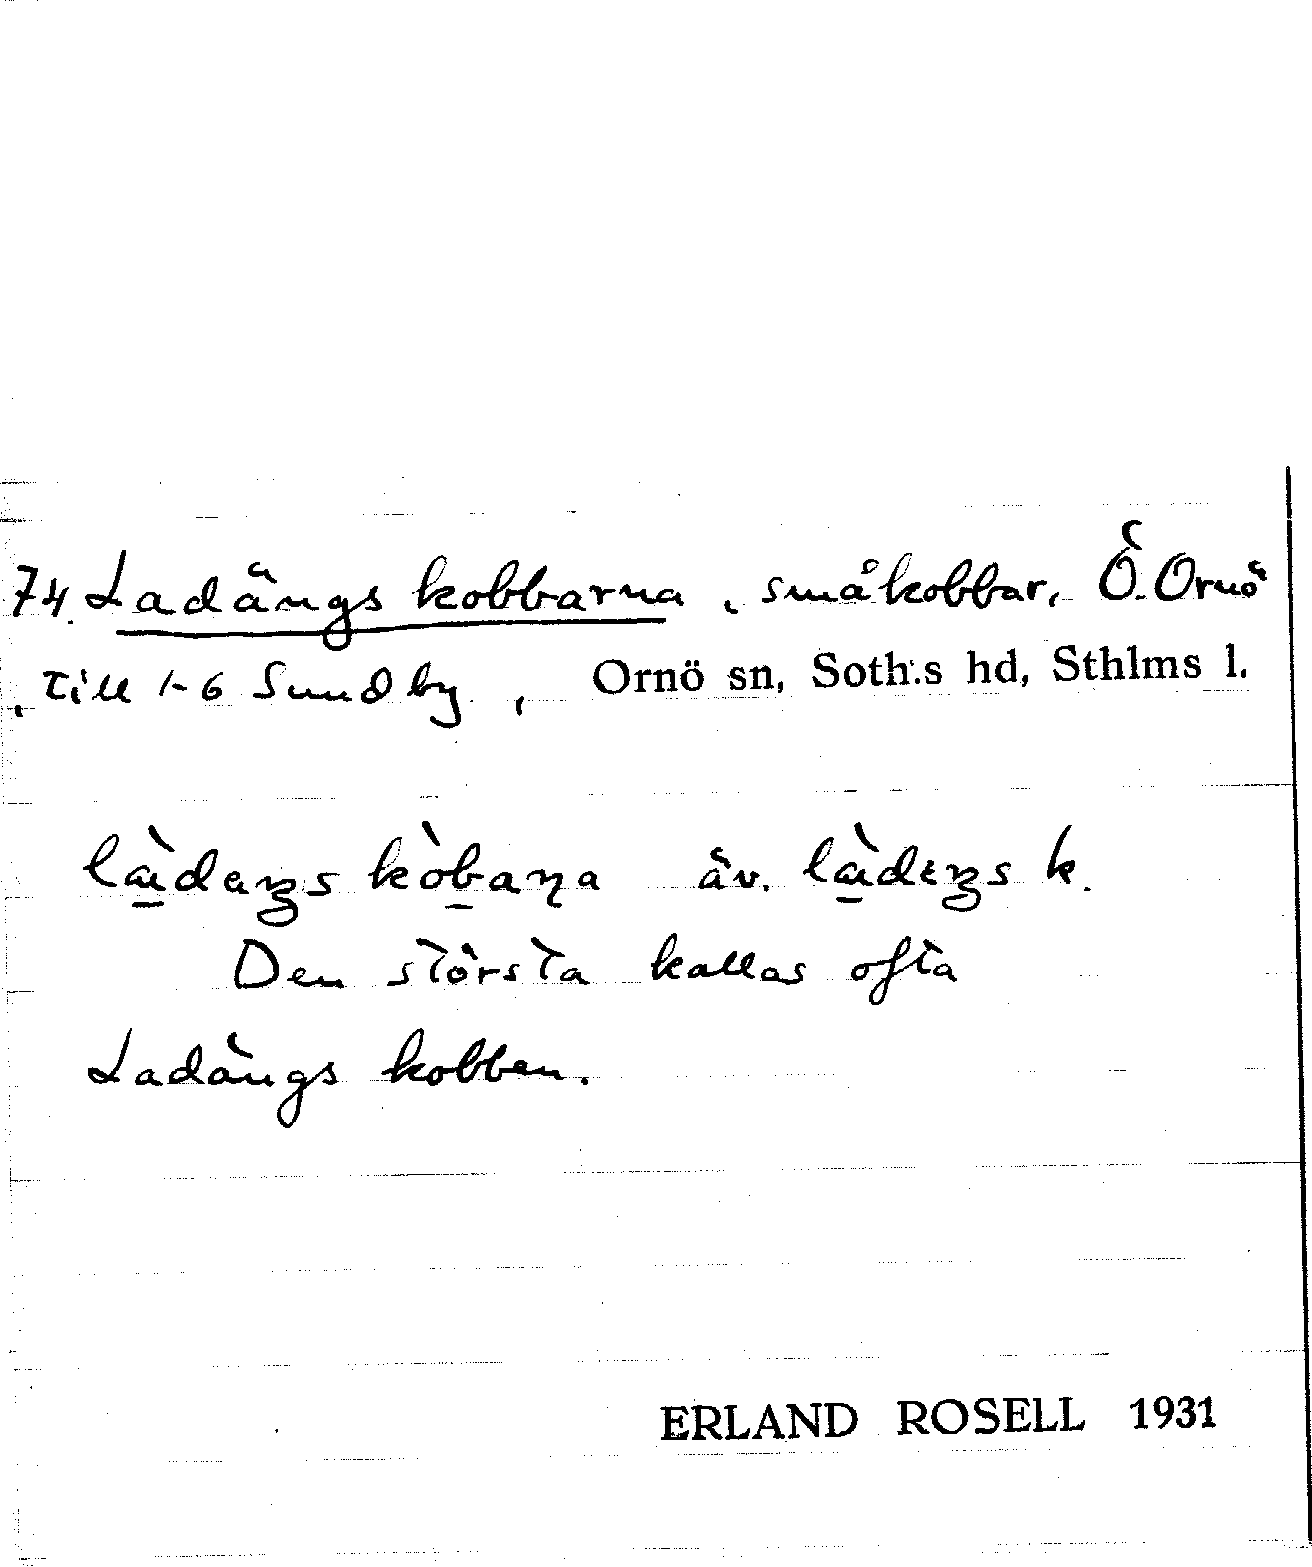 74. Ladängs kobbarna, småkobbar, Ö. Ornö
, till 1-6 Sundby, Ornö sn, Soth:s hd, Sthlms l.
äv. k.
Den största kallas ofta
Ladängs kobben.
ERLAND ROSELL 1931